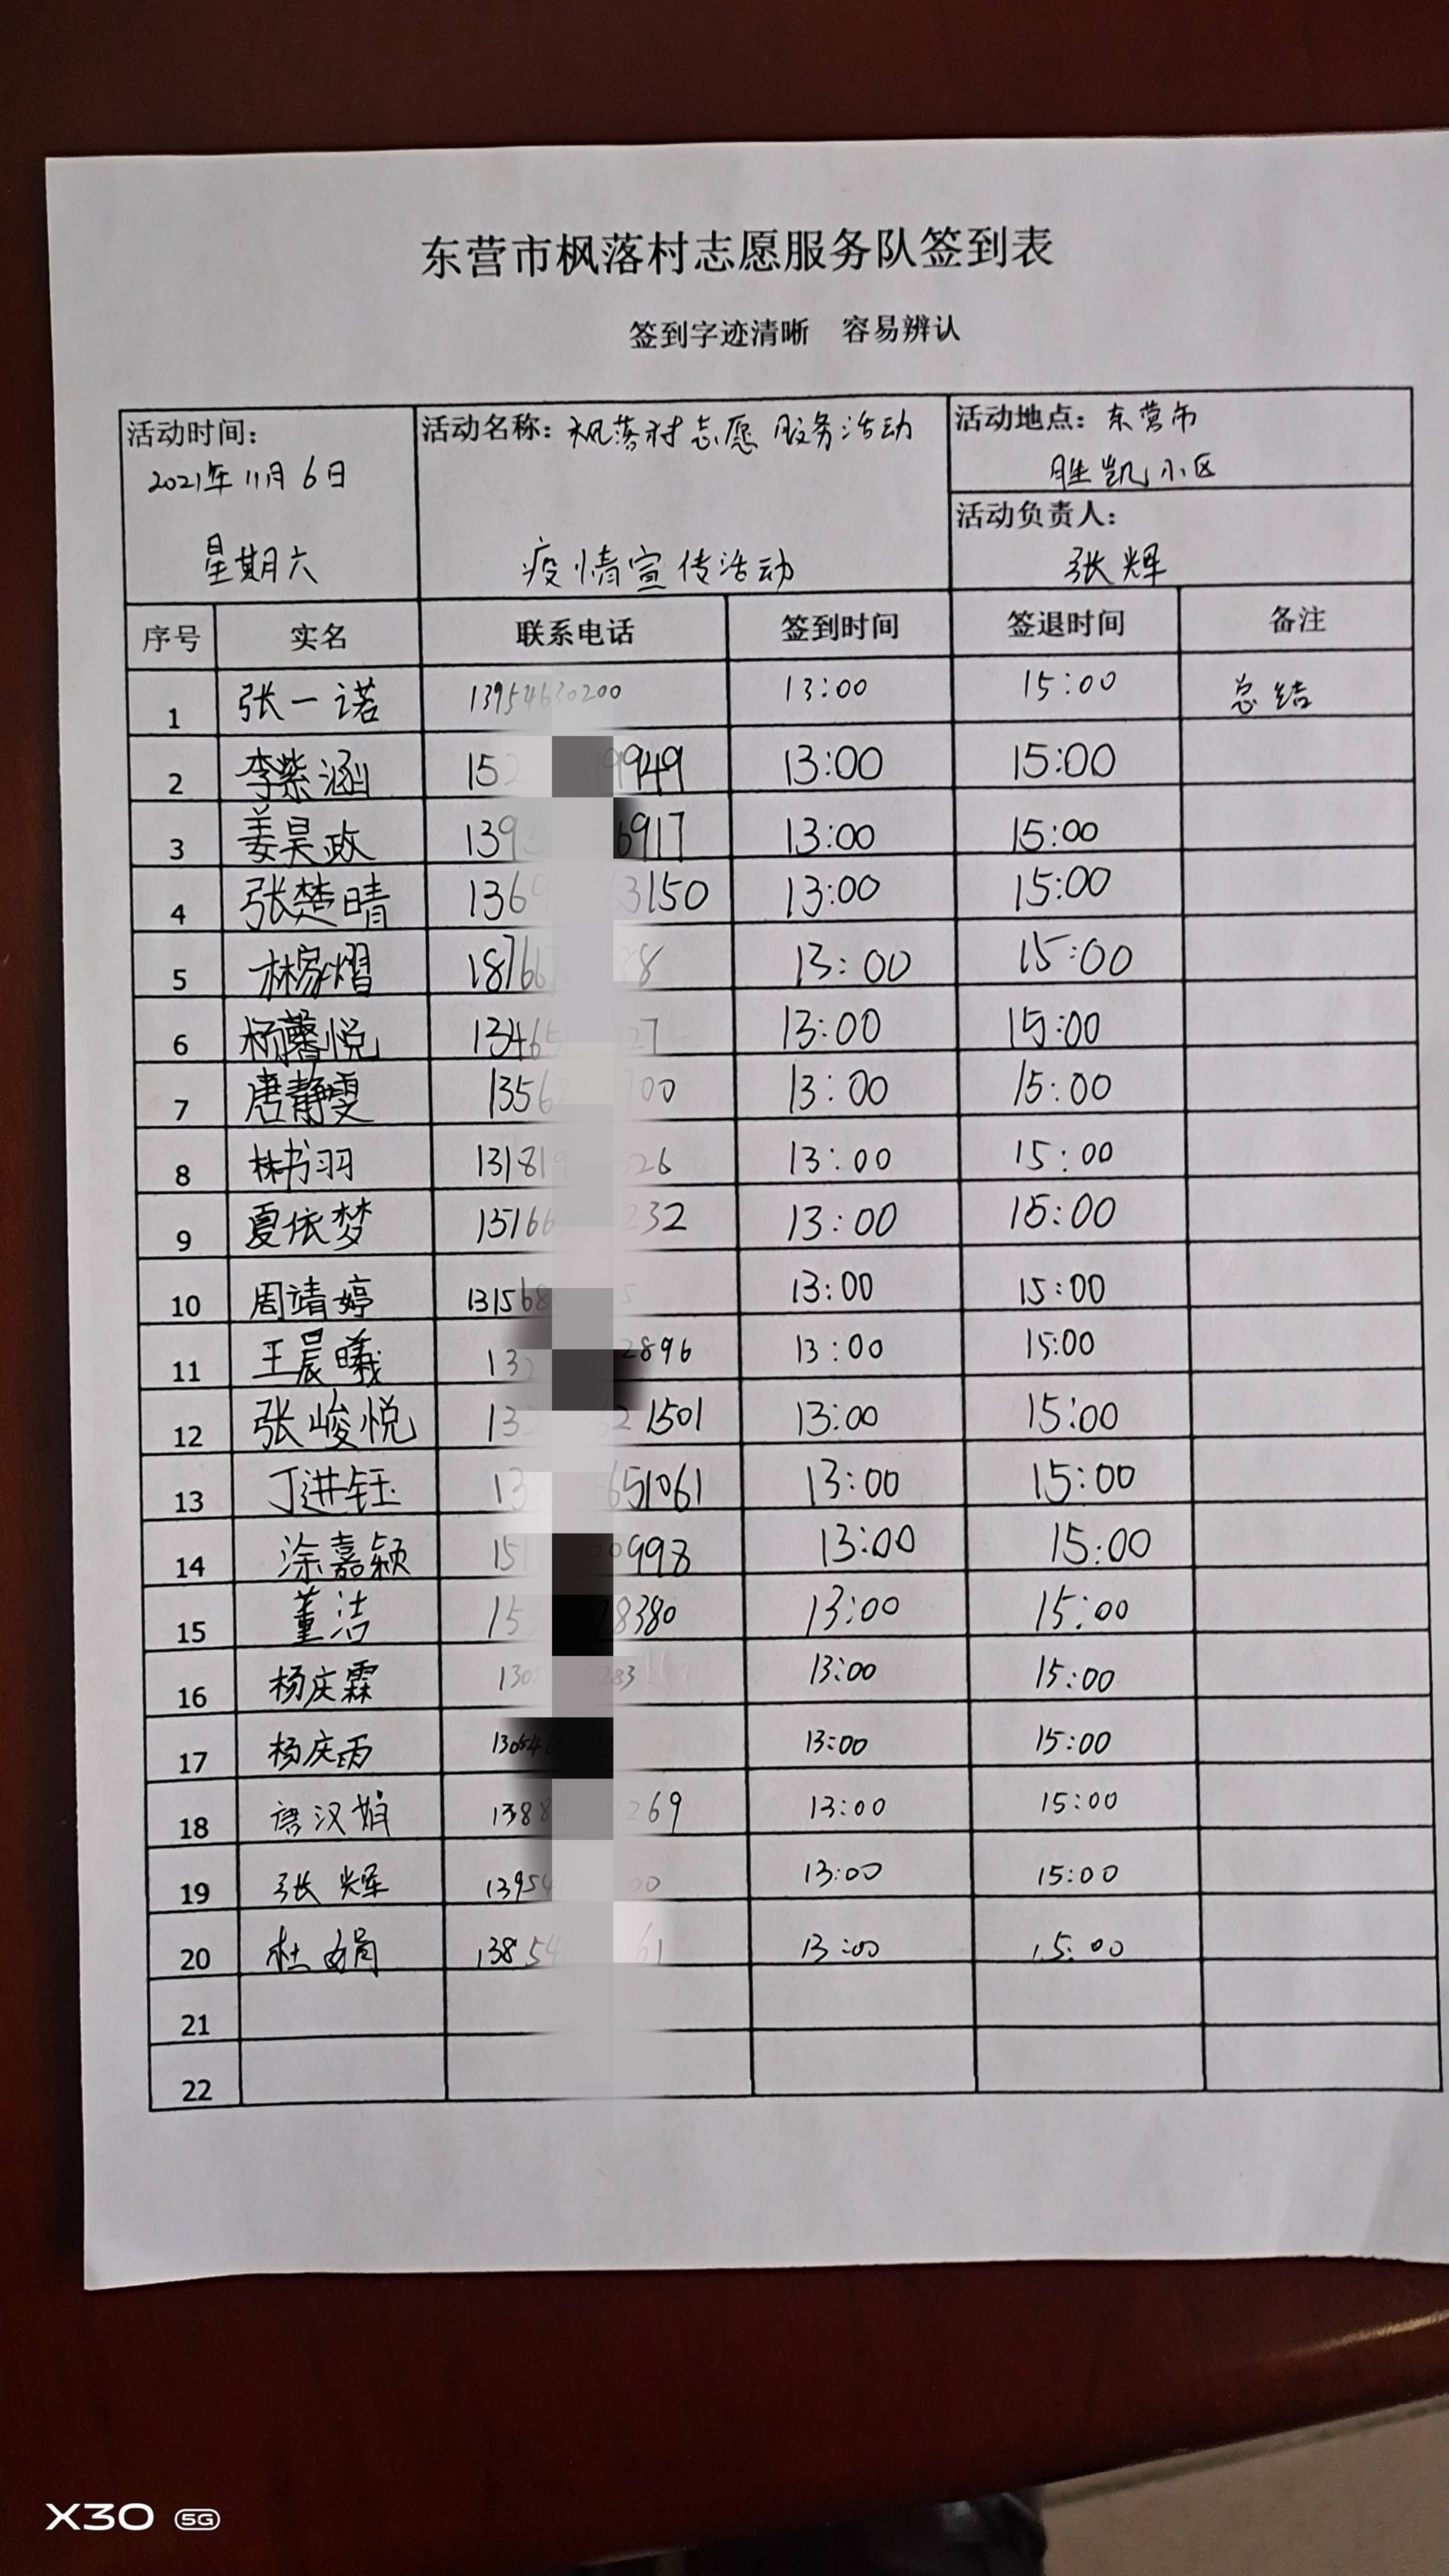 东营市枫落村志愿服务队签到表
签到字迹清晰 容易辨认
活动时间： 活动名称：枫落村志愿服务活动 活动地点：东营市
2021年11月6日 胜凯小区
活动负责人：
星期六 疫情宣传活动 张辉
序号 实名 联系电话 签到时间 签退时间 备注
1 张一诺 13954630200 13:00 15:00 总结
2 李紫涵 152 9949 13:00 15:00
3 姜昊政 139 6917 13:00 15:00
4 张楚晴 1369 3150 13:00 15:00
5 林家熠 18766 28 13:00 15:00
6 杨馨悦 13465 27 13:00 15:00
7 唐静雯 1356 00 13:00 15:00
8 林书羽 131819 26 13:00 15:00
9 夏依梦 15166 232 13:00 15:00
10 周靖婷 131568 5 13:00 15:00
11 王晨曦 132 2896 13:00 15:00
12 张峻悦 132 21501 13:00 15:00
13 丁进钰 13 651061 13:00 15:00
14 涂嘉颖 151 0998 13:00 15:00
15 董洁 15 8380 13:00 15:00
16 杨庆霖 130 283 13:00 15:00
17 杨庆雨 130546 13:00 15:00
18 唐汉娟 1388 269 13:00 15:00
19 张辉 13954 00 13:00 15:00
20 杜娟 13854 61 13:00 15:00
21
22
X30 5G